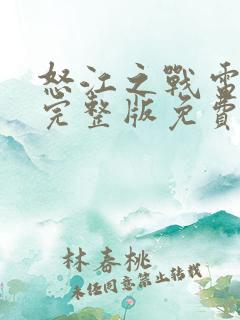 怒江之戰電
完整版免費
林春桃
未经同意禁止转载